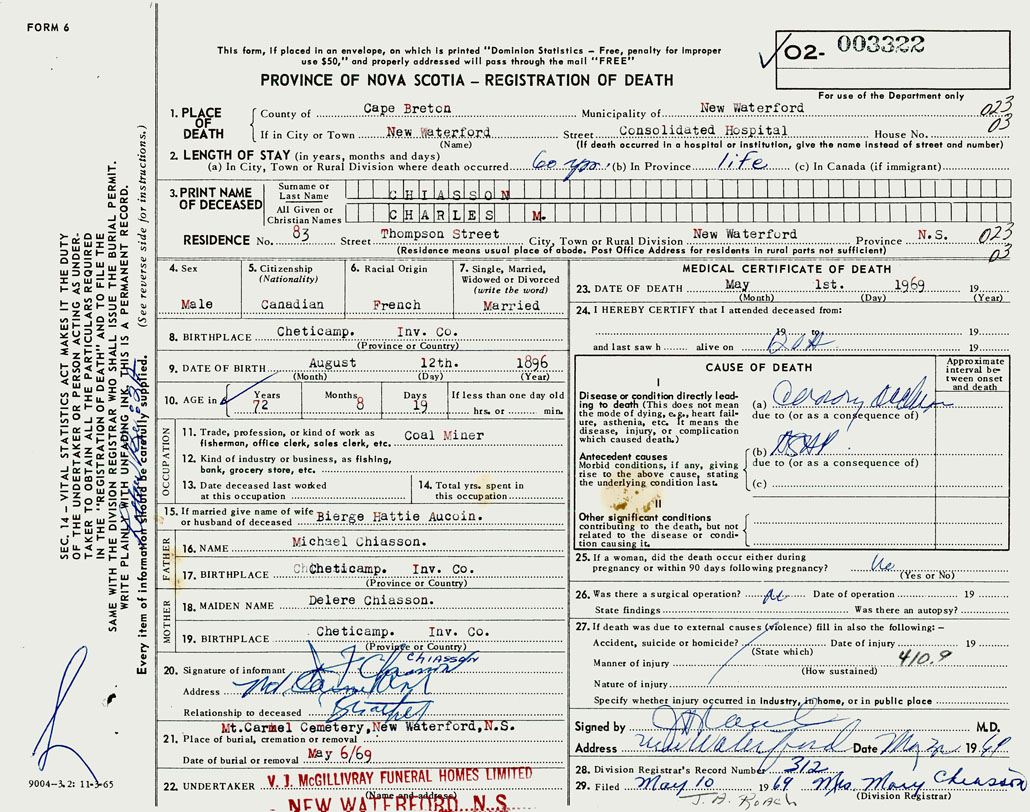 FORM 6
This form, if placed in an envelope, on which is printed "Dominion Statistics — Free, penalty for improper
use $50," and properly addressed will pass through the mail "FREE"
PROVINCE OF NOVA SCOTIA — REGISTRATION OF DEATH
02- 003322
For use of the Department only
1. PLACE OF DEATH
County of Cape Breton Municipality of New Waterford 023
If in City or Town New Waterford Street Consolidated Hospital House No. 03
(Name) (If death occurred in a hospital or institution, give the name instead of street and number)
2. LENGTH OF STAY (in years, months and days)
(a) In City, Town or Rural Division where death occurred 60 yrs. (b) In Province life (c) In Canada (if immigrant)
3. PRINT NAME OF DECEASED
Surname or Last Name CHIASSON
All Given or Christian Names CHARLES M.
RESIDENCE No. 83 Street Thompson Street City, Town or Rural Division New Waterford Province N.S. 023
(Residence means usual place of abode. Post Office Address for residents in rural parts not sufficient) 03
4. Sex
Male
5. Citizenship (Nationality)
Canadian
6. Racial Origin
French
7. Single, Married, Widowed or Divorced (write the word)
Married
8. BIRTHPLACE Cheticamp. Inv. Co.
(Province or Country)
9. DATE OF BIRTH August 12th. 1896
(Month) (Day) (Year)
10. AGE in Years 72 Months 8 Days 19 If less than one day old
hrs. or min.
OCCUPATION
11. Trade, profession, or kind of work as fisherman, office clerk, sales clerk, etc. Coal Miner
12. Kind of industry or business, as fishing, bank, grocery store, etc.
13. Date deceased last worked at this occupation
14. Total yrs. spent in this occupation
15. If married give name of wife or husband of deceased Bierge Hattie Aucoin.
FATHER
16. NAME Michael Chiasson.
17. BIRTHPLACE Cheticamp. Inv. Co.
(Province or Country)
MOTHER
18. MAIDEN NAME Delere Chiasson.
19. BIRTHPLACE Cheticamp. Inv. Co.
(Province or Country)
20. Signature of informant CHIASSON
Address
Relationship to deceased Brother
Mt.Carmel Cemetery,New Waterford,N.S.
21. Place of burial, cremation or removal
Date of burial or removal May 6/69
22. UNDERTAKER V. J. McGILLIVRAY FUNERAL HOMES LIMITED
(Name and address)
NEW WATERFORD, N.S.
MEDICAL CERTIFICATE OF DEATH
23. DATE OF DEATH May 1st. 1969 19
(Month) (Day) (Year)
24. I HEREBY CERTIFY that I attended deceased from:
19 to 19
and last saw h alive on DOA 19
CAUSE OF DEATH
Approximate interval between onset and death
I
Disease or condition directly leading to death (This does not mean the mode of dying, e.g., heart failure, asthenia, etc. It means the disease, injury, or complication which caused death.)
(a) Coronary Occlusion
due to (or as a consequence of)
Antecedent causes
Morbid conditions, if any, giving rise to the above cause, stating the underlying condition last.
(b)
due to (or as a consequence of)
(c)
II
Other significant conditions contributing to the death, but not related to the disease or condition causing it.
25. If a woman, did the death occur either during pregnancy or within 90 days following pregnancy? No
(Yes or No)
26. Was there a surgical operation? no Date of operation 19
State findings Was there an autopsy?
27. If death was due to external causes (violence) fill in also the following:—
Accident, suicide or homicide? Date of injury 19
(State which)
Manner of injury 410.9
(How sustained)
Nature of injury
Specify whether injury occurred in industry, in home, or in public place
Signed by M.D.
Address New Waterford Date May 2 1969
28. Division Registrar's Record Number 312
29. Filed May 10 1969 Mrs. Mary Chiasson
(Division Registrar)
J. A. ROACH
SEC. 14 — VITAL STATISTICS ACT MAKES IT THE DUTY
OF THE UNDERTAKER OR PERSON ACTING AS UNDER-
TAKER TO OBTAIN ALL THE PARTICULARS REQUIRED
IN THE "REGISTRATION OF DEATH" AND TO FILE THE
SAME WITH THE DIVISION REGISTRAR WHO SHALL ISSUE THE BURIAL PERMIT.
WRITE PLAINLY WITH UNFADING INK. THIS IS A PERMANENT RECORD.
Every item of information should be carefully supplied. (See reverse side for instructions.)
9004-3.2: 11-3-65